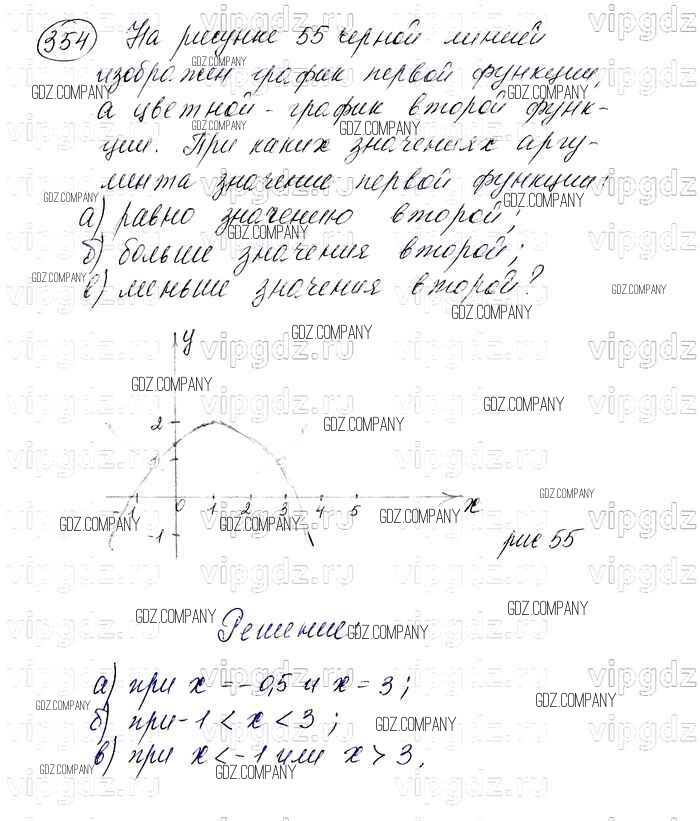 354 На рисунке 55 черной линией
изображен график первой функции,
а цветной - график второй функ-
ции. При каких значениях аргу-
мента значение первой функции:
а) равно значению второй;
б) больше значения второй;
в) меньше значения второй?
y
2
1
-1 0 1 2 3 4 5 x
-1
рис 55
Решение:
а) при x = -0,5 и x = 3;
б) при -1 < x < 3;
в) при x < -1 или x > 3.
GDZ.COMPANY
vipgdz.ru